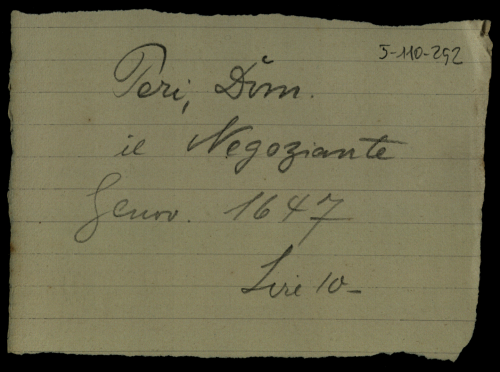 5-110-292
Peri, Dom.
il Negoziante
Genov. 1647
Lire 10-